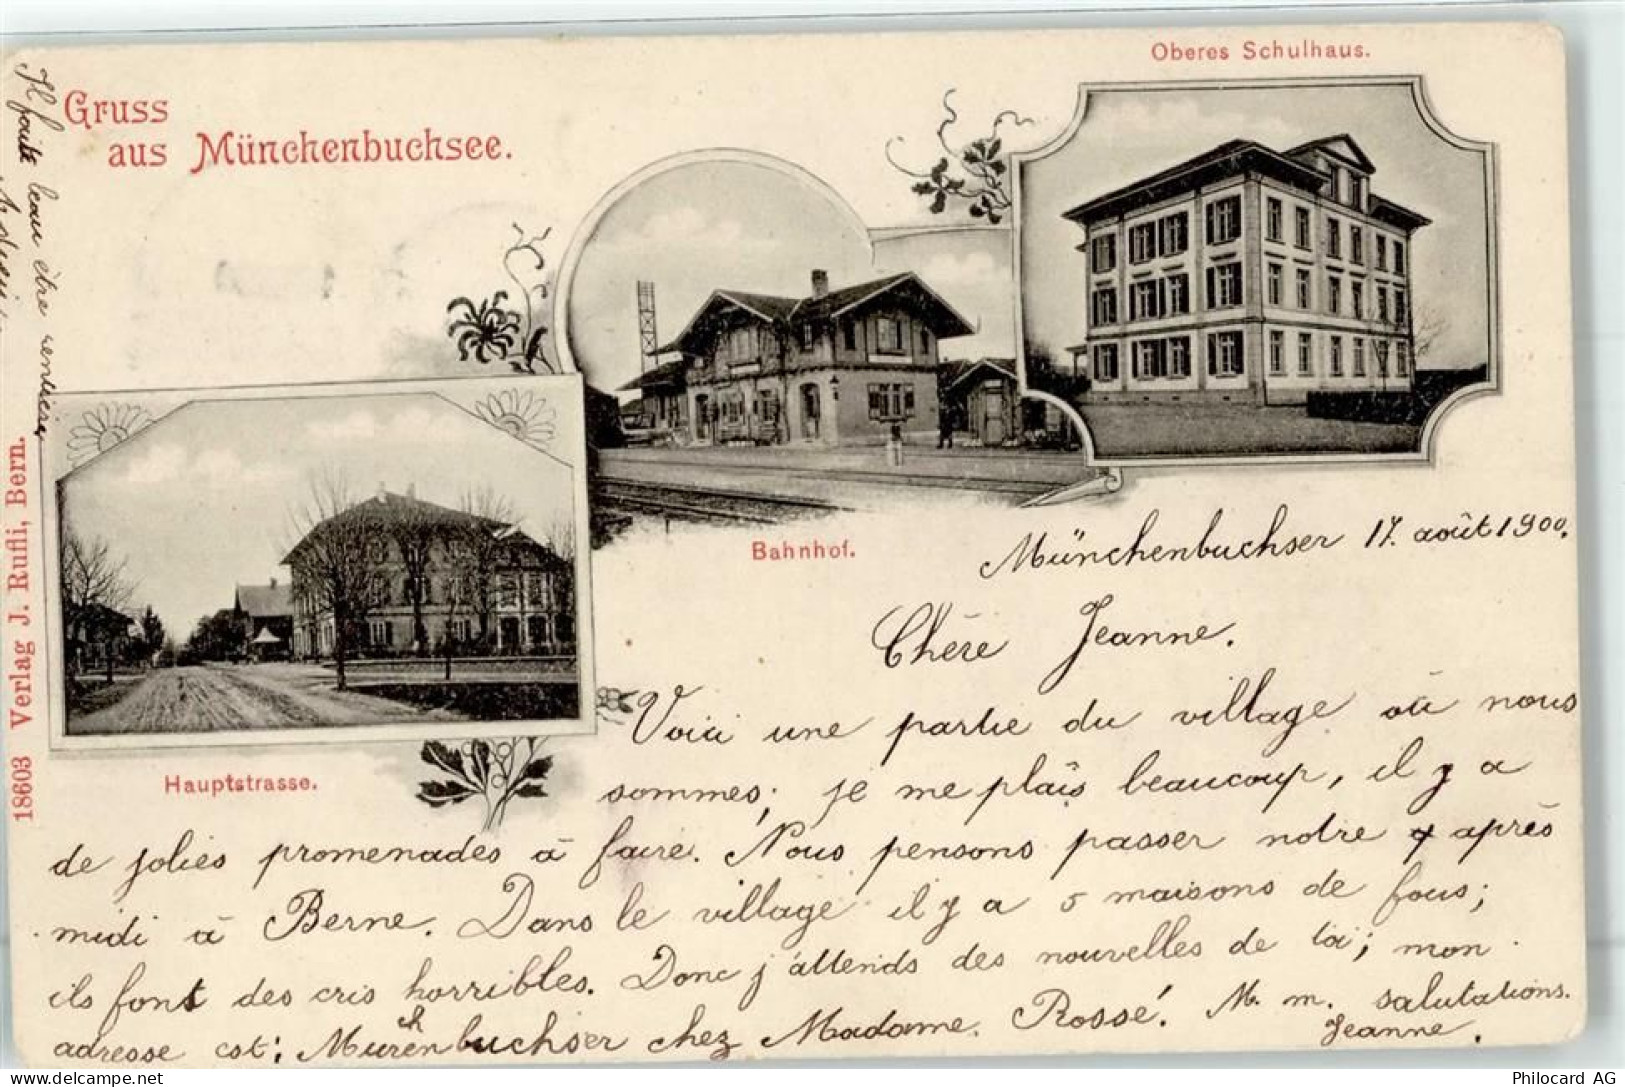 Oberes Schulhaus.
Gruss
aus Münchenbuchsee.
Bahnhof.
Hauptstrasse.
18603 Verlag J. Rufli, Bern.
Münchenbuchser 17. août 1900.
Chère Jeanne.
Voici une partie du village où nous
sommes; je me plais beaucoup, il y a
de jolies promenades à faire. Nous pensons passer notre après
midi à Berne. Dans le village il y a 5 maisons de fous;
ils font des cris horribles. Donc j'attends des nouvelles de toi; mon
adresse est: Münchenbuchser chez Madame Rossé. M. m. salutations.
Jeanne.
être
Philocard AG